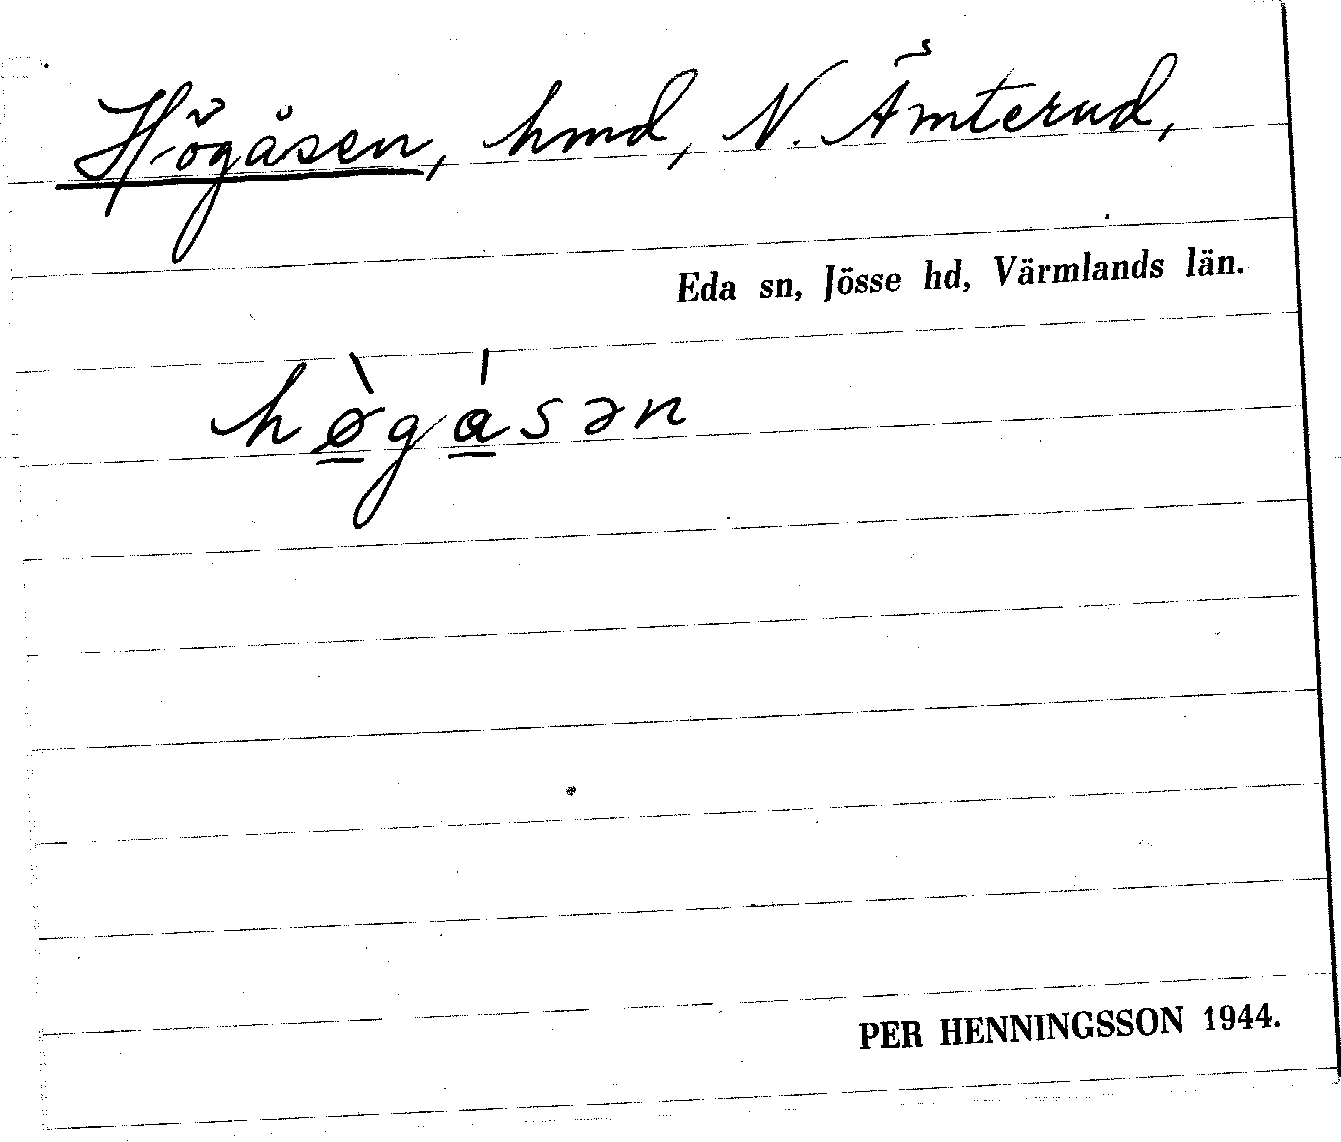 Högåsen, hmd, N. Ämterud,
Eda sn, Jösse hd, Värmlands län.
hø̠̀gá̠sən
PER HENNINGSSON 1944.